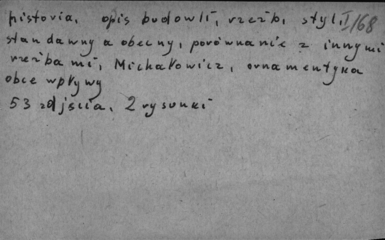 historia, opis budowli, rzeźb, styl, I/168
stan dawny a obecny, porównanie z innymi
rzeźbami, Michałowicz, ornamentyka
obce wpływy
53 zdjęcia, 2 rysunki